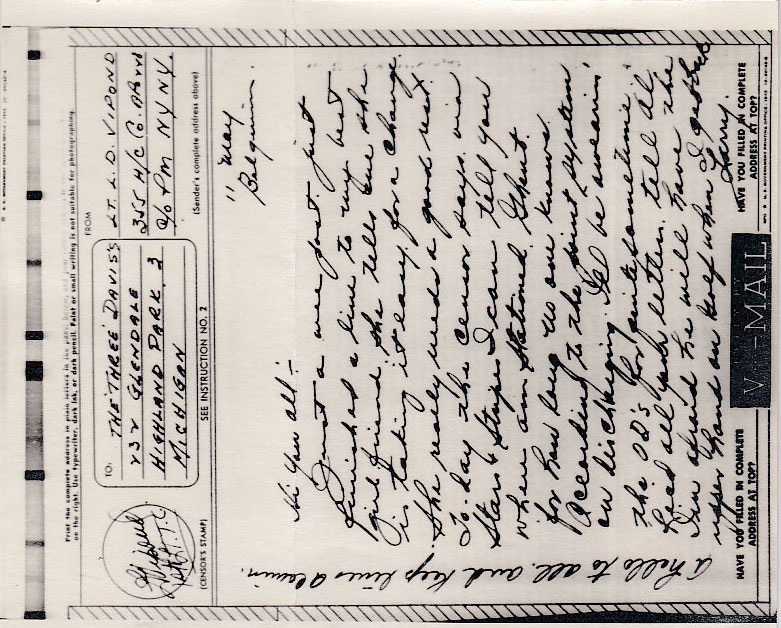 Print the complete address in plain letters in the panel below, and your return address in the space provided
on the right. Use typewriter, dark ink, or dark pencil. Faint or small writing is not suitable for photographing.
TO:
THE THREE DAVIS'S
232 GLENDALE
HIGHLAND PARK, 3
MICHIGAN
FROM
LT. L. D. VIPOND
355 H/C
c/o PM NY NY.
(Sender's complete address above)
(CENSOR'S STAMP)
SEE INSTRUCTION NO. 2
11 May
Belgium.
Hi You all:-
Just a wee post just
finished a line to my best
girl friend she tells me she
is taking it easy for a change
She really needs a good rest.
To-day the censor says via
Stars & Stripes I can tell you
where am stationed, Ghent.
for how long no one knows.
According to the point system
on discharging I'll be wearin'
the OD's for quite sometime
Read all your letter. tell Al
I'm afraid he will have the
upper hand on golf when I get back
Larry.
A hello to all and keep lines
HAVE YOU FILLED IN COMPLETE
ADDRESS AT TOP?
V-MAIL
HAVE YOU FILLED IN COMPLETE
ADDRESS AT TOP?